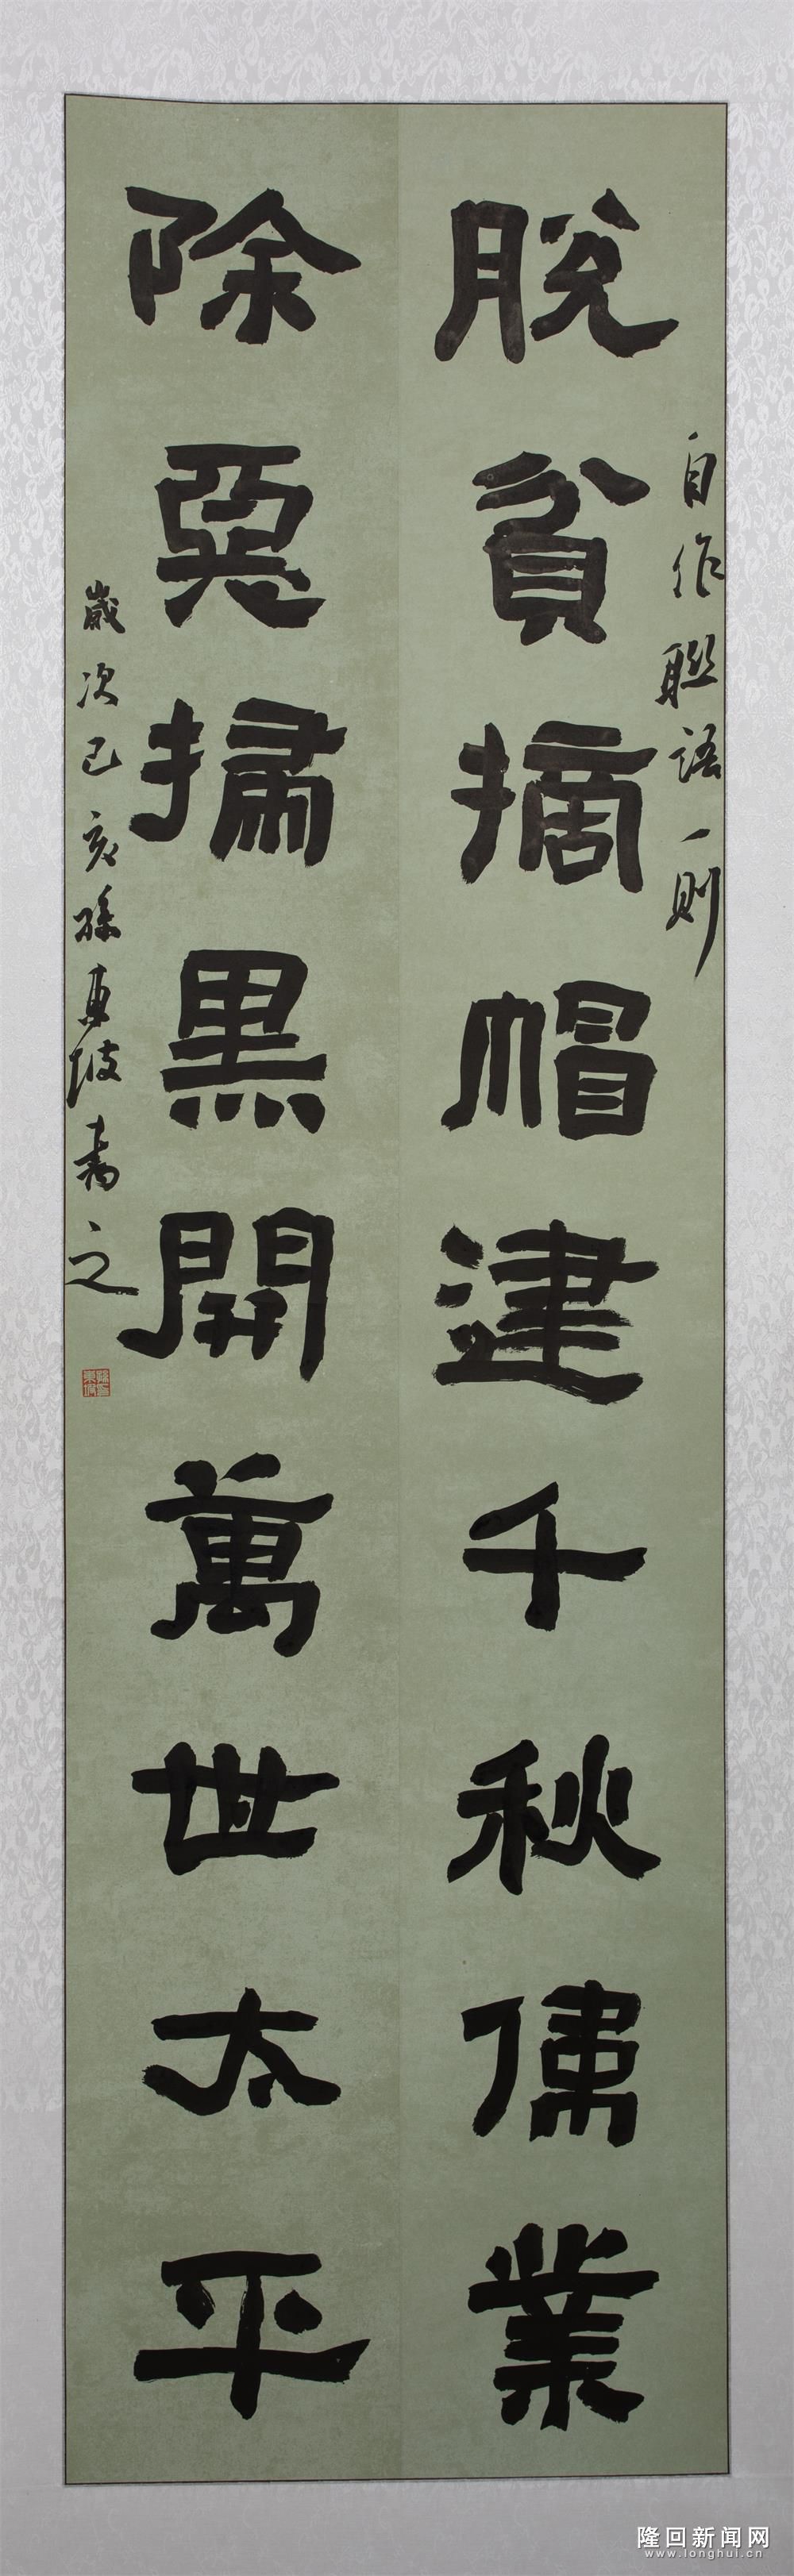 自作聯語一則
脫貧摘帽建千秋偉業
除惡掃黑開萬世太平
歲次己亥孫東坡書之
隆回新闻网
www.longhui.cn